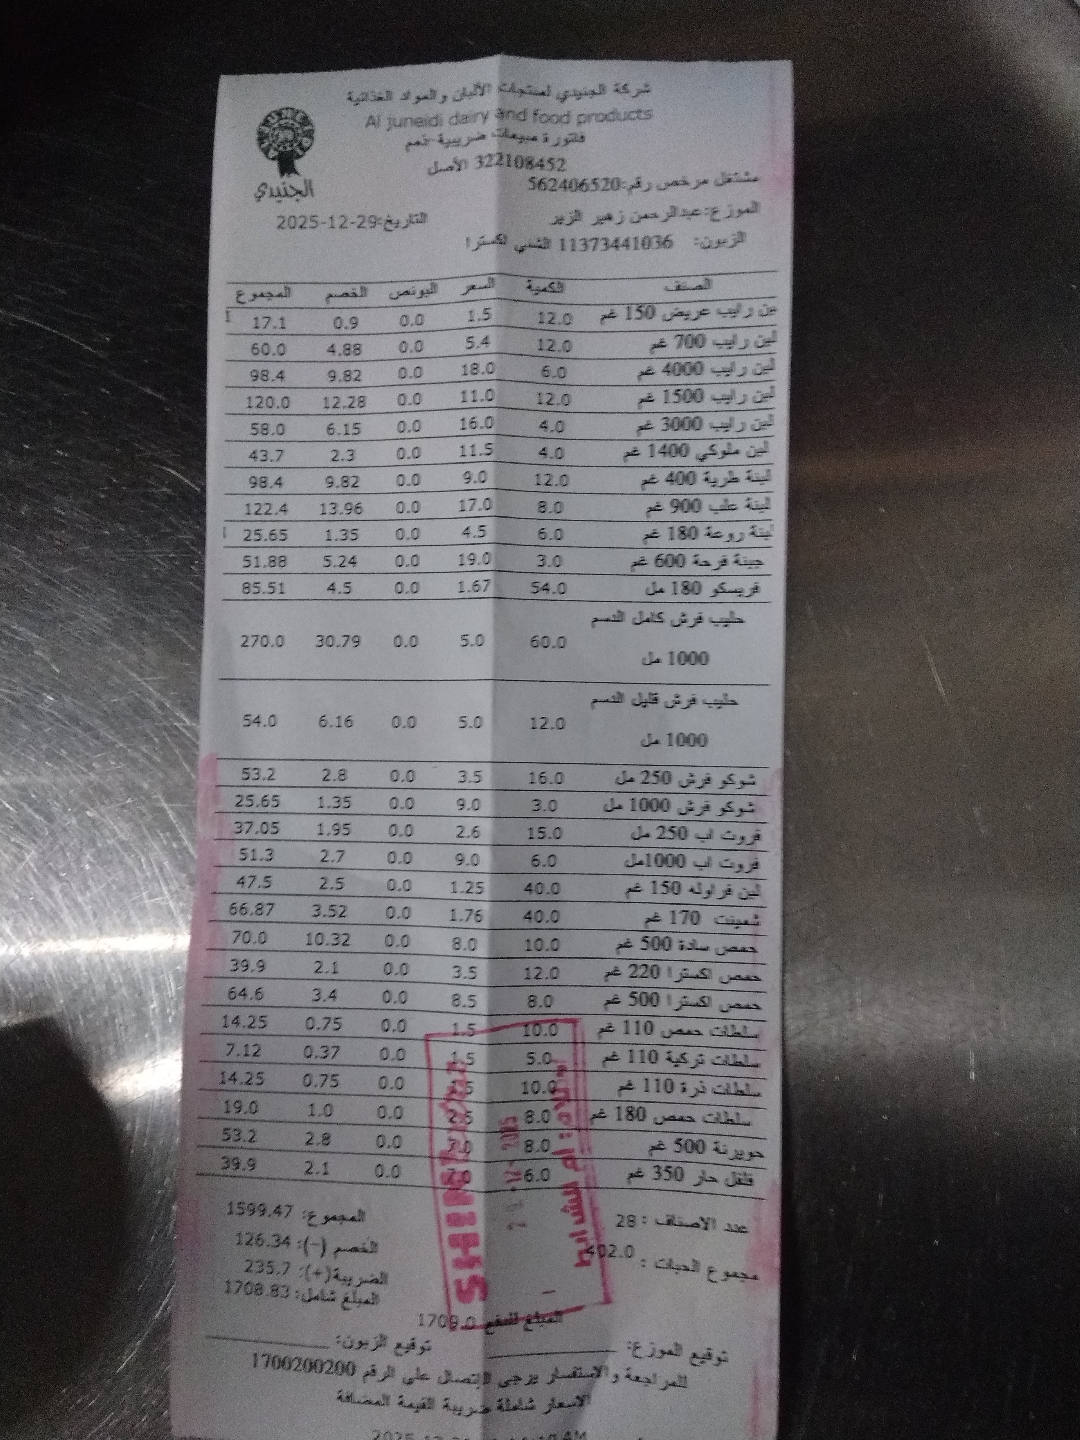 شركة الجنيدي لمنتجات الألبان والمواد الغذائية
Al juneidi dairy and food products
فاتورة مبيعات ضريبية-ذمم
322108452 الأصل
الجنيدي
مشتغل مرخص رقم:562406520
الموزع:عبدالرحمن زهير الزير
التاريخ:2025-12-29
الزبون: 11373441036 الشني اكسترا
الصنف الكمية السعر البونص الخصم المجموع
لبن رايب عريض 150 غم 12.0 1.5 0.0 0.9 17.1
لبن رايب 700 غم 12.0 5.4 0.0 4.88 60.0
لبن رايب 4000 غم 6.0 18.0 0.0 9.82 98.4
لبن رايب 1500 غم 12.0 11.0 0.0 12.28 120.0
لبن رايب 3000 غم 4.0 16.0 0.0 6.15 58.0
لبن ملوكي 1400 غم 4.0 11.5 0.0 2.3 43.7
لبنة طرية 400 غم 12.0 9.0 0.0 9.82 98.4
لبنة علب 900 غم 8.0 17.0 0.0 13.96 122.4
لبنة روعة 180 غم 6.0 4.5 0.0 1.35 25.65
جبنة فرحة 600 غم 3.0 19.0 0.0 5.24 51.88
فريسكو 180 مل 54.0 1.67 0.0 4.5 85.51
حليب فرش كامل الدسم
1000 مل 60.0 5.0 0.0 30.79 270.0
حليب فرش قليل الدسم
1000 مل 12.0 5.0 0.0 6.16 54.0
شوكو فرش 250 مل 16.0 3.5 0.0 2.8 53.2
شوكو فرش 1000 مل 3.0 9.0 0.0 1.35 25.65
فروت اب 250 مل 15.0 2.6 0.0 1.95 37.05
فروت اب 1000مل 6.0 9.0 0.0 2.7 51.3
لبن فراوله 150 غم 40.0 1.25 0.0 2.5 47.5
شمينت 170 غم 40.0 1.76 0.0 3.52 66.87
حمص سادة 500 غم 10.0 8.0 0.0 10.32 70.0
حمص اكسترا 220 غم 12.0 3.5 0.0 2.1 39.9
حمص اكسترا 500 غم 8.0 8.5 0.0 3.4 64.6
سلطات حمص 110 غم 10.0 1.5 0.0 0.75 14.25
سلطات تركية 110 غم 5.0 1.5 0.0 0.37 7.12
سلطات ذرة 110 غم 10.0 0.0 0.75 14.25
سلطات حمص 180 غم 8.0 2.5 0.0 1.0 19.0
حويرنة 500 غم 8.0 0.0 2.8 53.2
فلفل حار 350 غم 6.0 0.0 2.1 39.9
عدد الاصناف : 28
المجموع: 1599.47
مجموع الحبات : 402.0
الخصم (-): 126.34
الضريبة(+): 235.7
المبلغ شامل: 1708.83
المبلغ للدفع 1709.0
توقيع الموزع: توقيع الزبون:
للمراجعة والاستفسار يرجى الإتصال على الرقم 1700200200
الاسعار شاملة ضريبة القيمة المضافة